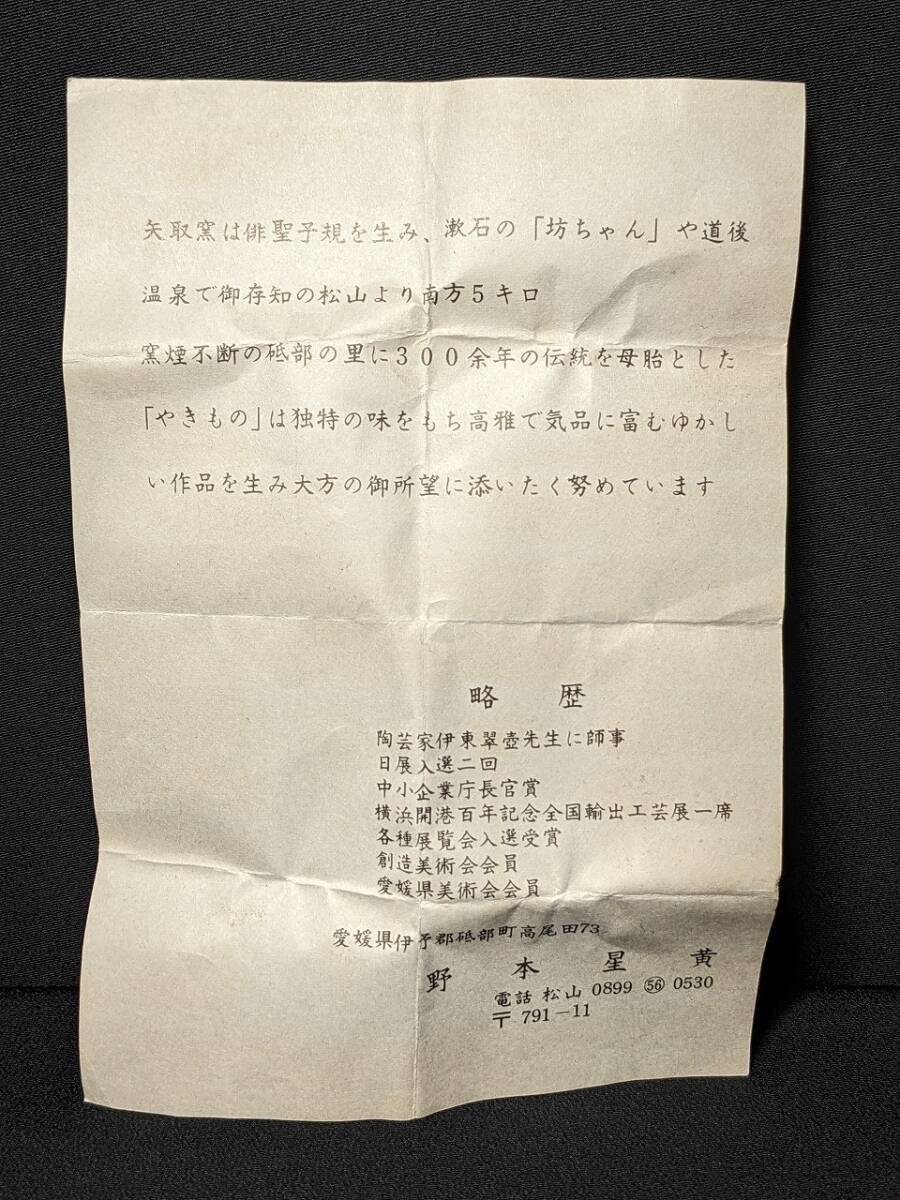 矢取窯は俳聖子規を生み、漱石の「坊ちゃん」や道後
温泉で御存知の松山より南方5キロ
窯煙不断の砥部の里に300余年の伝統を母胎とした
「やきもの」は独特の味をもち高雅で気品に富むゆかし
い作品を生み大方の御所望に添いたく努めています
略 歴
陶芸家伊東翠壺先生に師事
日展入選二回
中小企業庁長官賞
横浜開港百年記念全国輸出工芸展一席
各種展覧会入選受賞
創造美術会会員
愛媛県美術会会員
愛媛県伊予郡砥部町高尾田73
野 本 星 黄
電話 松山 0899 ㊶ 0530
〒 791-11